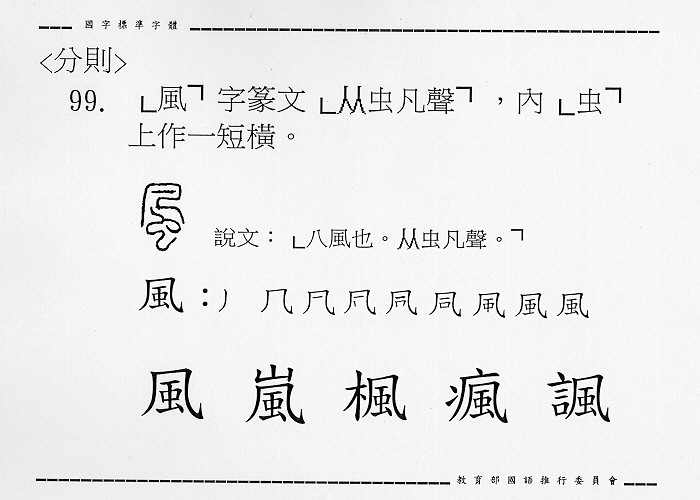 國字標準字體
<分則>
99. 「風」字篆文「从虫凡聲」，內「虫」
上作一短橫。
說文：「八風也。从虫凡聲。」
風：丿 几 凡 凨 凬 凮 風 風 風
風 嵐 楓 瘋 諷
教育部國語推行委員會